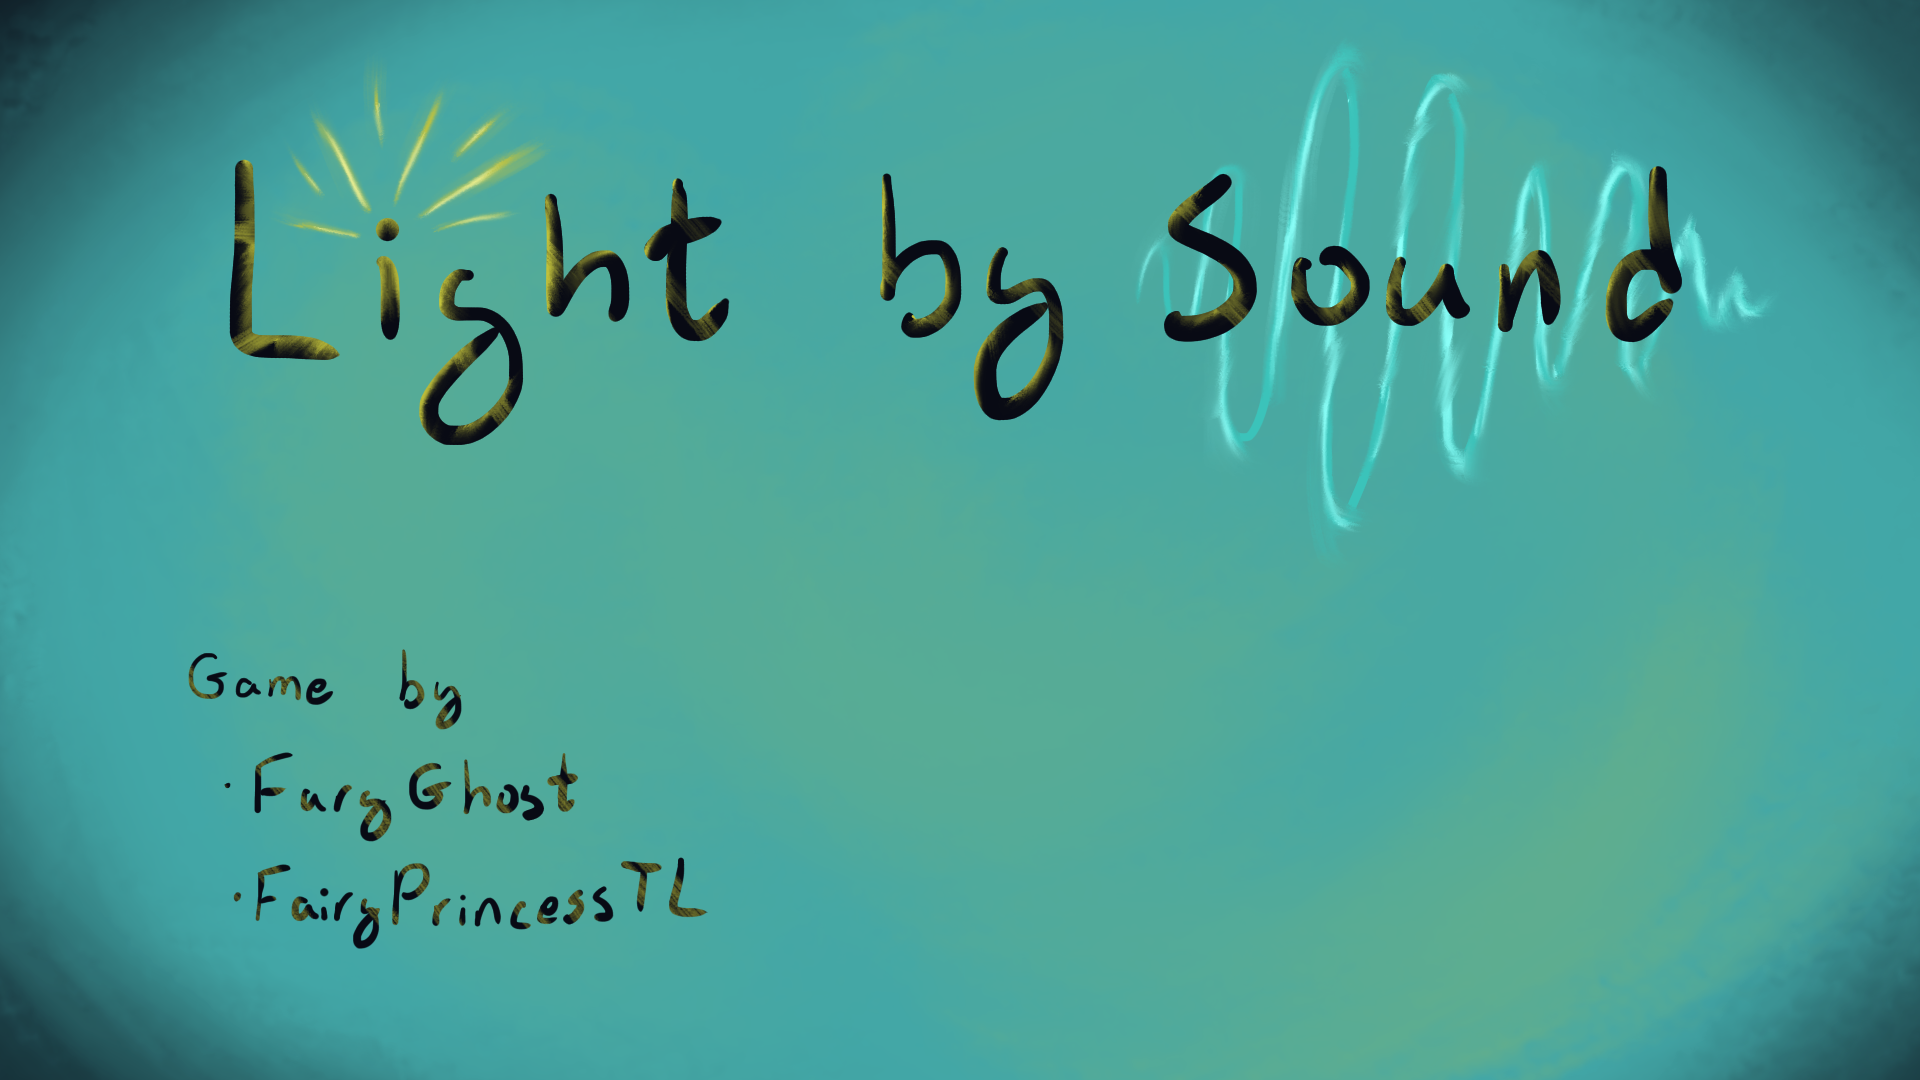 Light by Sound
Game by
· FuryGhost
· FairyPrincessTL